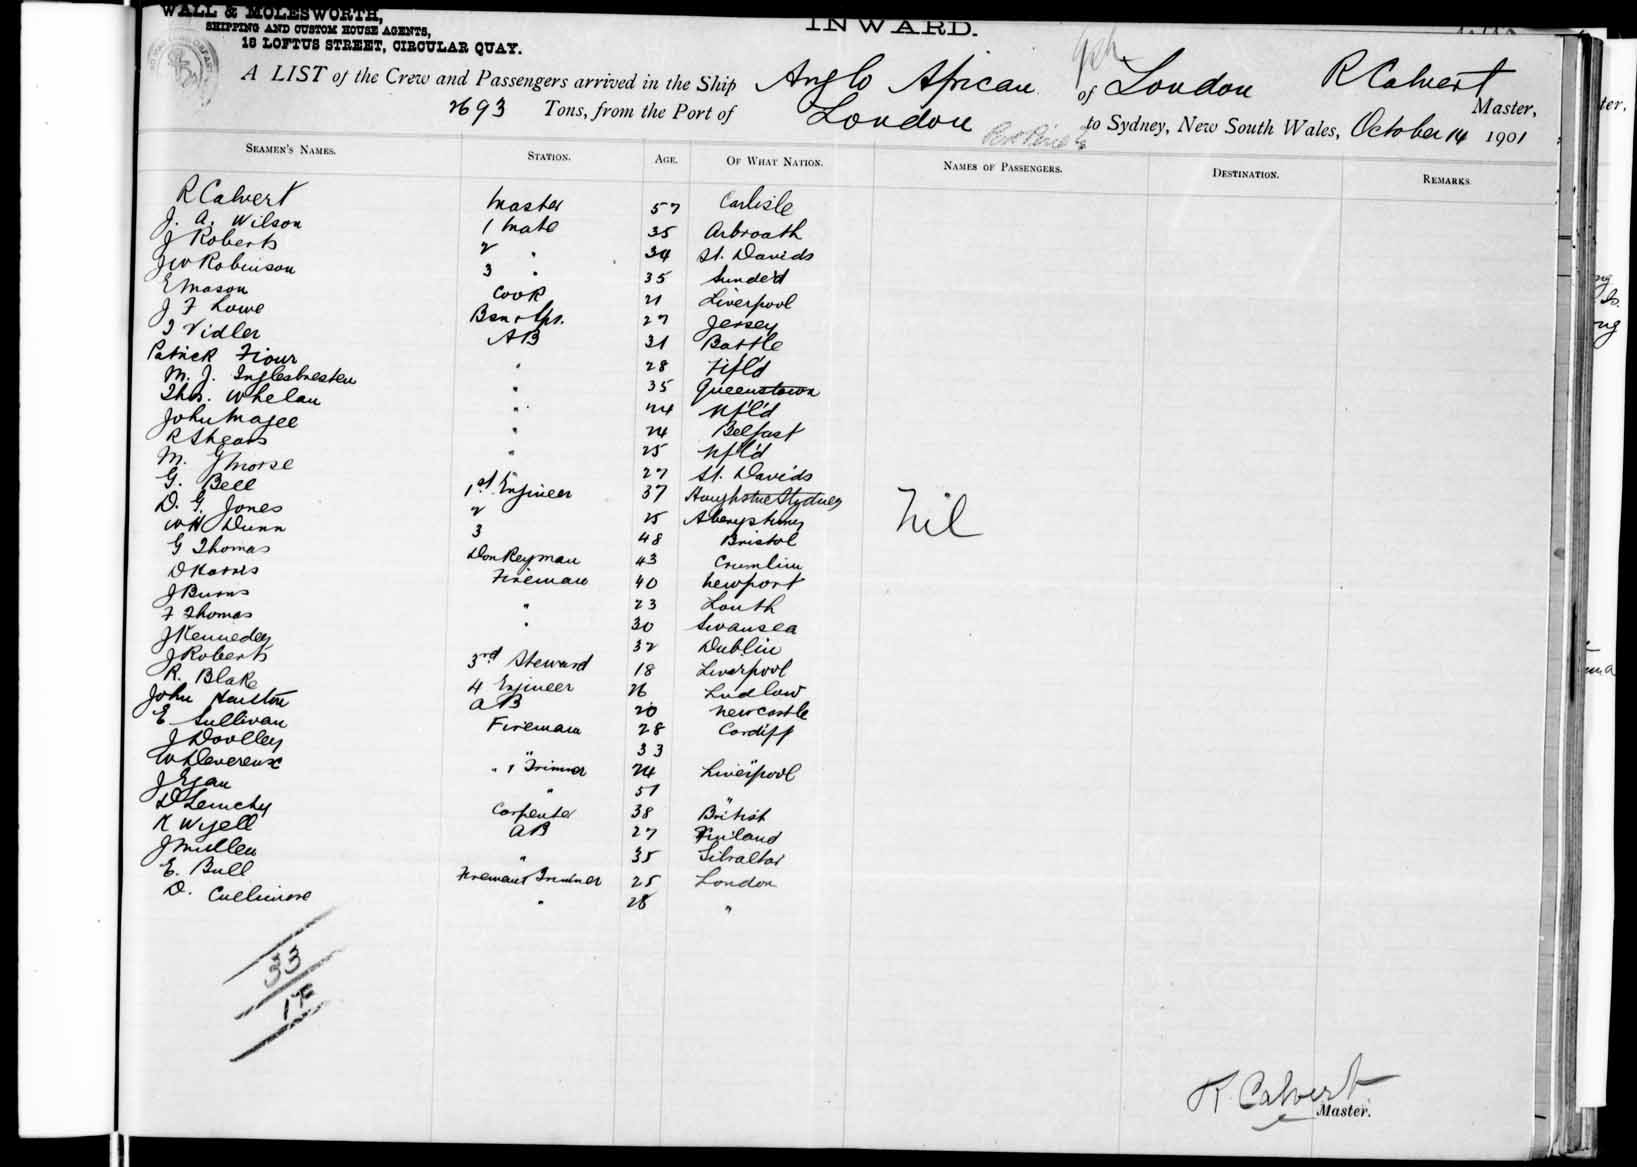 WALL & MOLESWORTH,
SHIPPING AND CUSTOM HOUSE AGENTS,
18 LOFTUS STREET, CIRCULAR QUAY.
INWARD.
A LIST of the Crew and Passengers arrived in the Ship Anglo African of London R Calvert Master,
2693 Tons, from the Port of London to Sydney, New South Wales, October 14 1901
SEAMEN'S NAMES. STATION. AGE. OF WHAT NATION. NAMES OF PASSENGERS. DESTINATION. REMARKS
R Calvert Master 57 Carlisle
J. A. Wilson 1 Mate 35 Arbroath
J Roberts 2 " 34 St. Davids
JW Robinson 3 " 35 Sunde'd
E Mason Cook 21 Liverpool
J F Lowe Bsn & Lps. 27 Jersey
J Vidler AB 31 Battle
Patrick " 28 Nf'l'd
M. J. " 35 Queenstown
Thos. Whelan " 24 Nf'l'd
John Magee " 24 Belfast
R Shears " 25 Nf'l'd
M. G Morse 27 St. Davids
G. Bell 1st Engineer 37
D. G. Jones 2 25
WH Dunn 3 48 Bristol
G Thomas Donkeyman 43 Crumlin
D Fireman 40 Newport
J Burns " 23 Louth
F Thomas " 30 Swansea
J Kennedy 32 Dublin
J Roberts 3rd Steward 18 Liverpool
R. Blake 4 Engineer 26 Ludlow
John Houston AB 20 Newcastle
E Sullivan Fireman 28 Cardiff
J Doolley 33
W Devereux " & Trimmer 24 Liverpool
J Egan " 51 "
D Carpenter 38 British
K Wyell AB 27 Finland
J Mullen " 35 Gibraltar
E. Bull Fireman & Trimmer 25 London
D. Cullimore " 28 "
Nil
33
R. Calvert
Master.